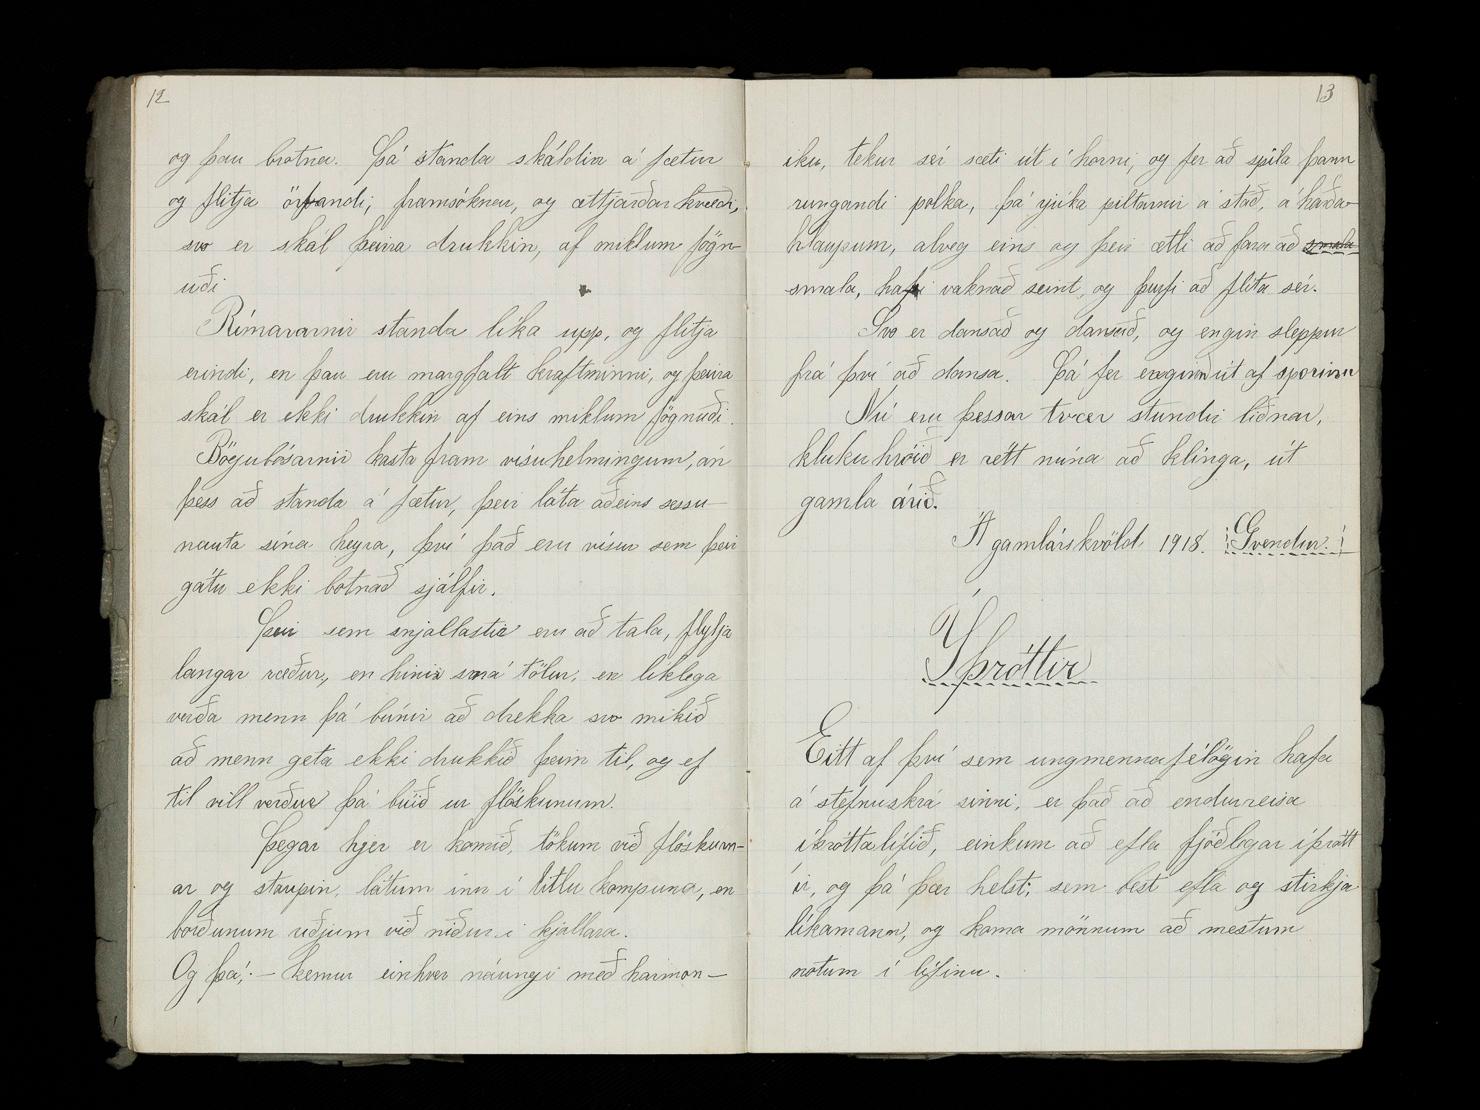 12
og þau brotna. Þá standa skáldin á fætur
og flitja örfandi, framsóknar, og ættjarðar kvæði,
svo er skál þeirra drukkin, af miklum fögn-
uði
Rímararnir standa líka upp, og flitja
erindi, en þau eru margfalt kraftminni, og þeirra
skál er ekki drukkin af eins miklum fögnuði.
Bögubósarnir kasta fram vísuhelmingum, án
þess að standa á fætur, þeir láta aðeins sessu-
nauta sína heyra, því það eru vísur sem þeir
gátu ekki botnað sjálfir.
Þeir sem snjallastir eru að tala, flylja
langar ræður, en hinir smá tölur, en líklega
verða menn þá búnir að drekka svo mikið
að menn geta ekki drukkið þeim til, og ef
til vill verður þá búið ur flöskunum.
Þegar hjer er komið, tökum við flöskurn-
ar og staupin, látum inn í litlu kompuna, en
borðunum riðjum við niður í kjallara.
Og þá! - kemur einhver náungi með harmon-
13
iku, tekur sér sæti út í horni, og fer að spila þann
rungandi polka, þá rjúka piltarnir á stað, á harða-
hlaupum, alveg eins og þeir ætli að fara að smala
smala, hafi vaknað seint, og þurfi að flíta sér.
Svo er dansað og dansað, og engin sleppur
frá því að dansa. Þá fer enginn út af sporinu
Nú eru þessar tvær stundir liðnar,
klukuhróið er rétt núna að klínga, út
gamla árið.
Á gamlárskvöld 1918. Gvendur.
Íþróttir
Eitt af því sem ungmennafélögin hafa
á stefnuskrá sinni, er það að endurreisa
íþróttalífið, einkum að efla þjóðlegar íþrótt
ir, og þá þær helst, sem best efla og stirkja
líkamann, og koma mönnum að mestum
notum í lífinu.